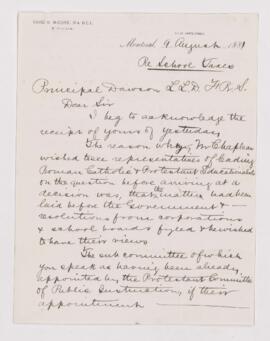 Montreal, 9 August 1881
Re School Taxes
Principal Dawson L.L.D. F.R.S.
Dear Sir
I beg to acknowledge the
receipt of yours of yesterday
The reason why Mr Chapleau
wished to see representatives of leading
Roman Catholic & Protestant Educationalists
on the question before arriving at a
decision was, that the matter had been
laid before the Government &
resolutions from corporations
& school boards fyled & he wished
to have their views.
The sub committee of which
you speak as having been already
appointed by the Protestant Committee
of Public Instruction, if their
appointment